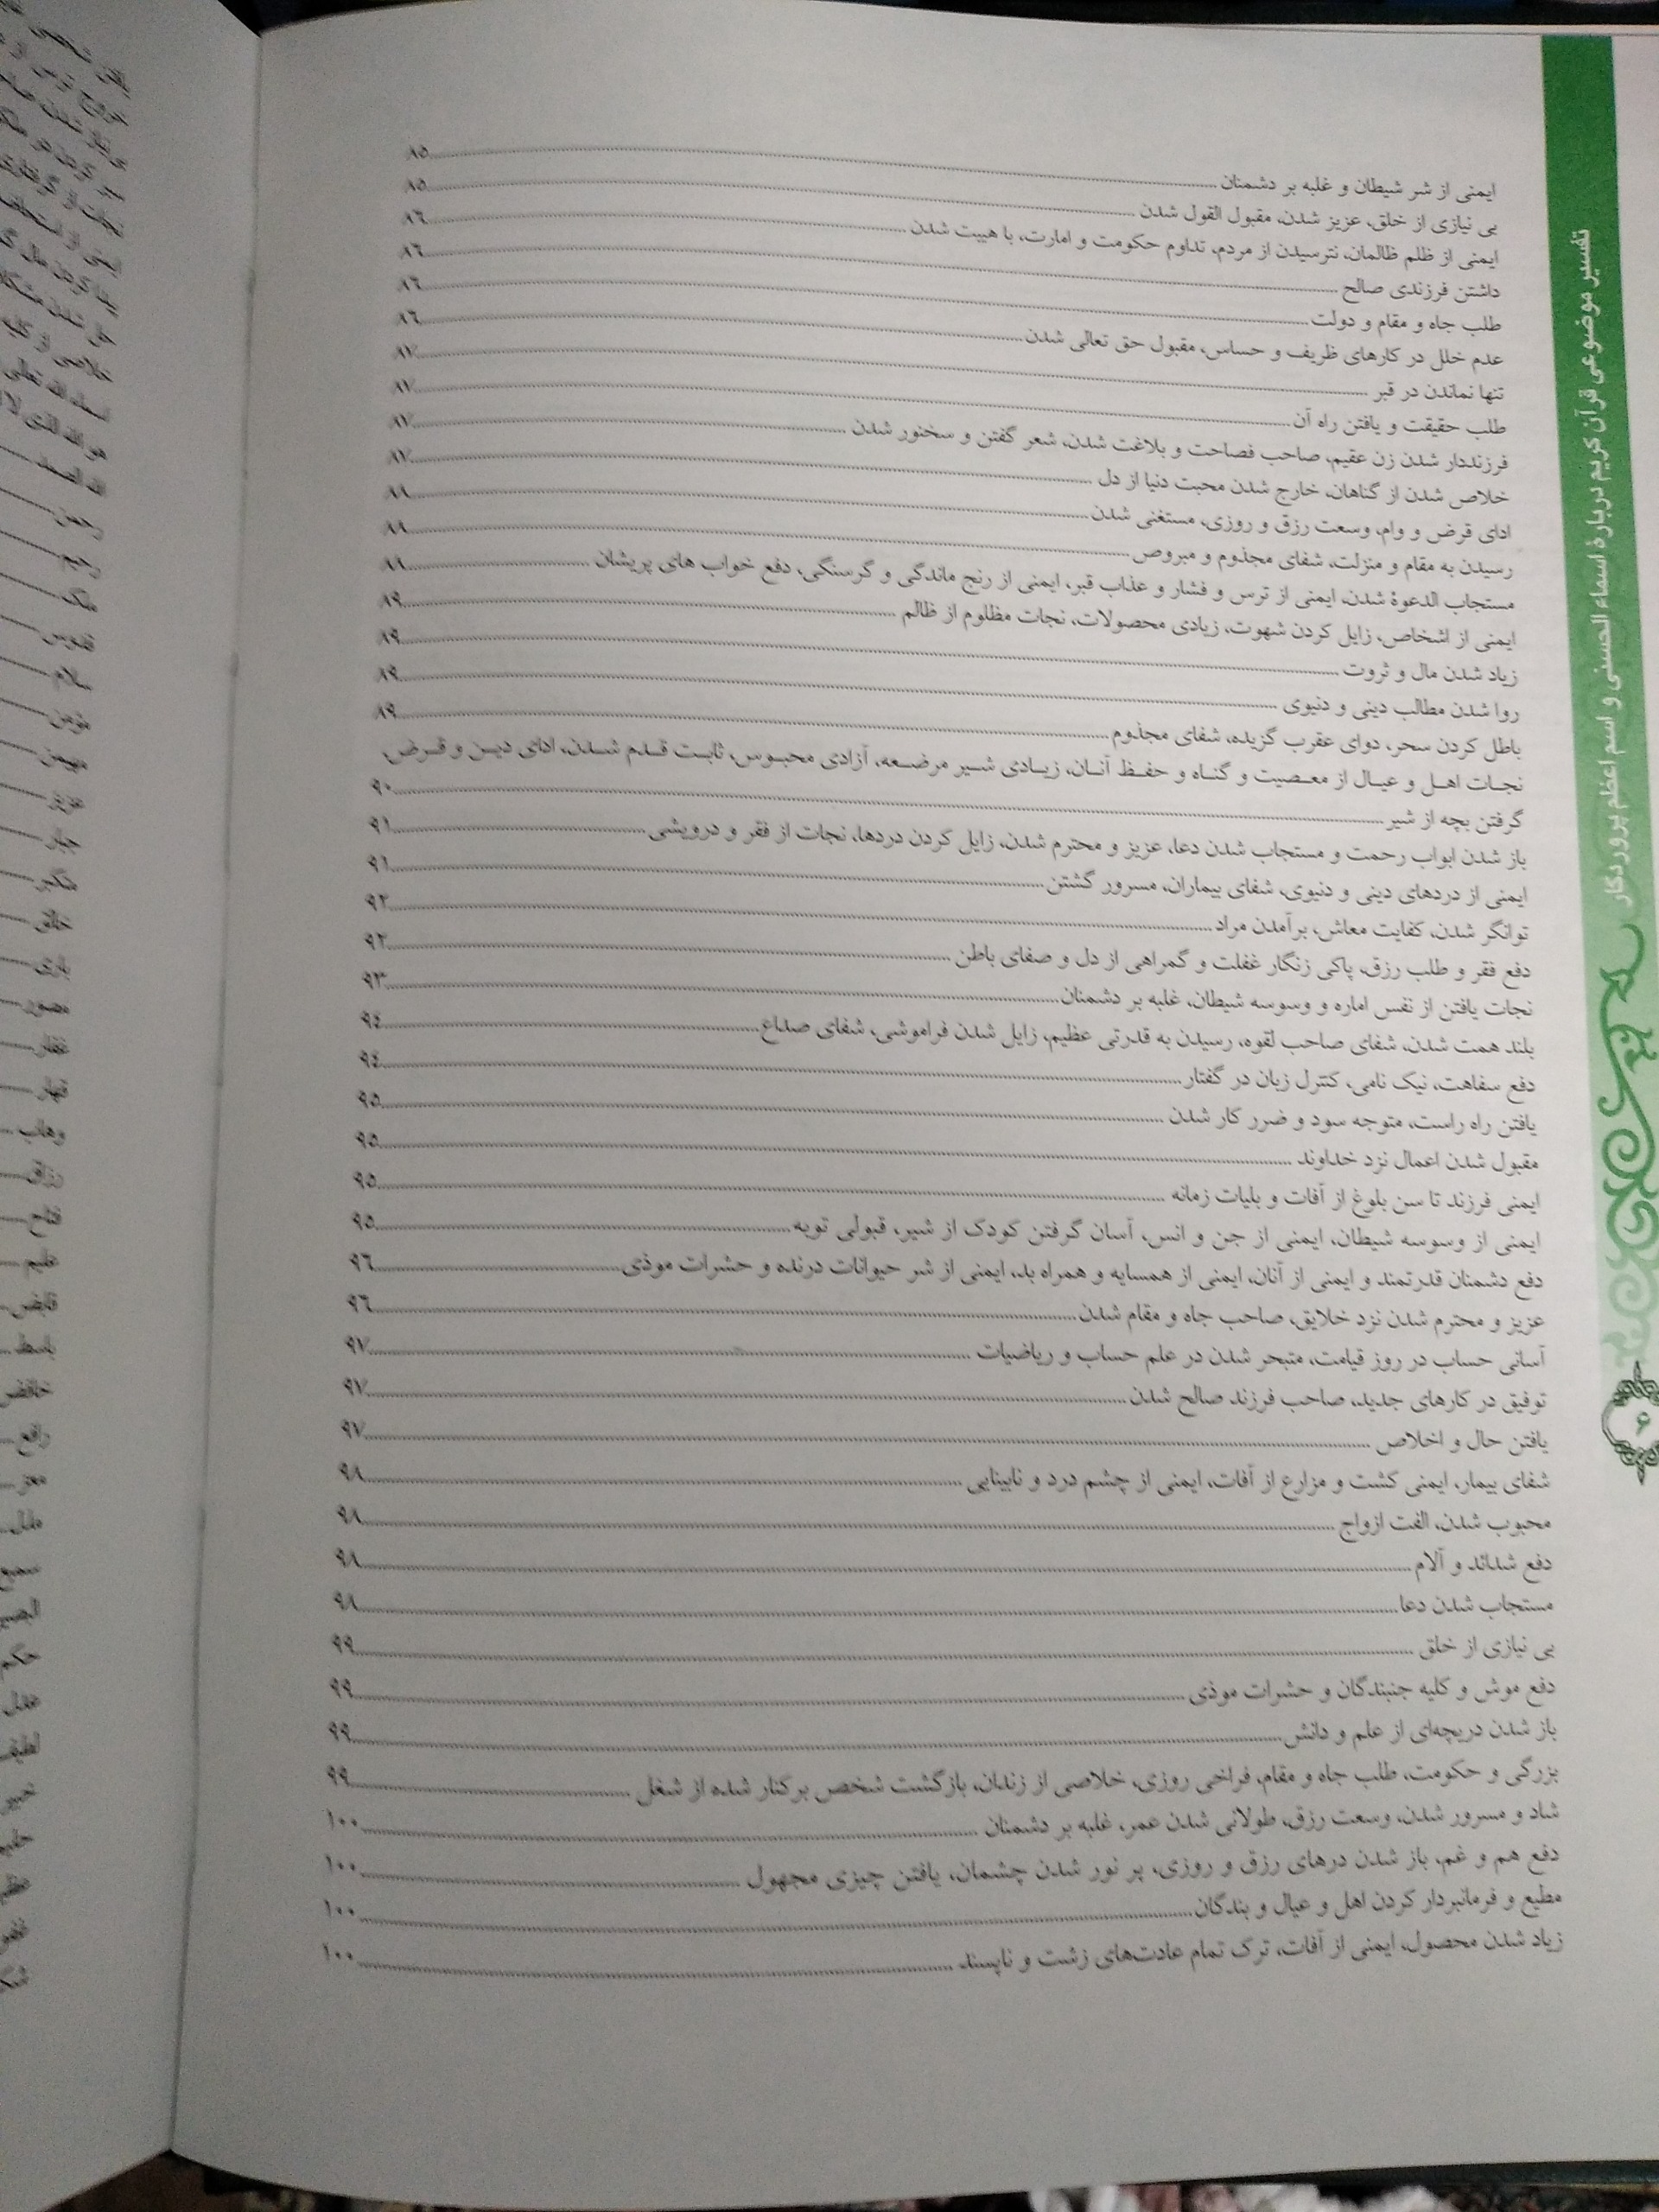 ایمنی از شر شیطان و غلبه بر دشمنان ........ ۸۵
بی نیازی از خلق، عزیز شدن، مقبول القول شدن ........ ۸۵
ایمنی از ظلم ظالمان، نترسیدن از مردم، تداوم حکومت و امارت، با هیبت شدن ........ ۸۶
داشتن فرزندی صالح ........ ۸۶
طلب جاه و مقام و دولت ........ ۸۶
عدم خلل در کارهای ظریف و حساس، مقبول حق تعالی شدن ........ ۸۶
تنها نماندن در قبر ........ ۸۷
طلب حقیقت و یافتن راه آن ........ ۸۷
فرزنددار شدن زن عقیم، صاحب فصاحت و بلاغت شدن، شعر گفتن و سخنور شدن ........ ۸۷
خلاص شدن از گناهان، خارج شدن محبت دنیا از دل ........ ۸۷
ادای قرض و وام، وسعت رزق و روزی، مستغنی شدن ........ ۸۸
رسیدن به مقام و منزلت، شفای مجذوم و مبروص ........ ۸۸
مستجاب الدعوة شدن، ایمنی از ترس و فشار و عذاب قبر، ایمنی از رنج ماندگی و گرسنگی، دفع خواب های پریشان ........ ۸۸
ایمنی از اشخاص، زایل کردن شهوت، زیادی محصولات، نجات مظلوم از ظالم ........ ۸۹
زیاد شدن مال و ثروت ........ ۸۹
روا شدن مطالب دینی و دنیوی ........ ۸۹
باطل کردن سحر، دوای عقرب گزیده، شفای مجذوم ........ ۸۹
نجات اهل و عیال از معصیت و گناه و حفظ آنان، زیادی شیر مرضعه، آزادی محبوس، ثابت قدم شدن، ادای دین و قرض،
گرفتن بچه از شیر ........ ۹۰
باز شدن ابواب رحمت و مستجاب شدن دعا، عزیز و محترم شدن، زایل کردن دردها، نجات از فقر و درویشی ........ ۹۱
ایمنی از دردهای دینی و دنیوی، شفای بیماران، مسرور گشتن ........ ۹۱
توانگر شدن، کفایت معاش، برآمدن مراد ........ ۹۲
دفع فقر و طلب رزق، پاکی زنگار غفلت و گمراهی از دل و صفای باطن ........ ۹۲
نجات یافتن از نفس اماره و وسوسه شیطان، غلبه بر دشمنان ........ ۹۳
بلند همت شدن، شفای صاحب لقوه، رسیدن به قدرتی عظیم، زایل شدن فراموشی، شفای صداع ........ ۹۴
دفع سفاهت، نیک نامی، کنترل زبان در گفتار ........ ۹۴
یافتن راه راست، متوجه سود و ضرر کار شدن ........ ۹۵
مقبول شدن اعمال نزد خداوند ........ ۹۵
ایمنی فرزند تا سن بلوغ از آفات و بلیات زمانه ........ ۹۵
ایمنی از وسوسه شیطان، ایمنی از جن و انس، آسان گرفتن کودک از شیر، قبولی توبه ........ ۹۵
دفع دشمنان قدرتمند و ایمنی از آنان، ایمنی از همسایه و همراه بد، ایمنی از شر حیوانات درنده و حشرات موذی ........ ۹۶
عزیز و محترم شدن نزد خلایق، صاحب جاه و مقام شدن ........ ۹۶
آسانی حساب در روز قیامت، متبحر شدن در علم حساب و ریاضیات ........ ۹۷
توفیق در کارهای جدید، صاحب فرزند صالح شدن ........ ۹۷
یافتن حال و اخلاص ........ ۹۷
شفای بیمار، ایمنی کشت و مزارع از آفات، ایمنی از چشم درد و نابینایی ........ ۹۸
محبوب شدن، الفت ازواج ........ ۹۸
دفع شدائد و آلام ........ ۹۸
مستجاب شدن دعا ........ ۹۸
بی نیازی از خلق ........ ۹۹
دفع موش و کلیه جنبندگان و حشرات موذی ........ ۹۹
باز شدن دریچه‌ای از علم و دانش ........ ۹۹
بزرگی و حکومت، طلب جاه و مقام، فراخی روزی، خلاصی از زندان، بازگشت شخص برکنار شده از شغل ........ ۹۹
شاد و مسرور شدن، وسعت رزق، طولانی شدن عمر، غلبه بر دشمنان ........ ۱۰۰
دفع هم و غم، باز شدن درهای رزق و روزی، پر نور شدن چشمان، یافتن چیزی مجهول ........ ۱۰۰
مطیع و فرمانبردار کردن اهل و عیال و بندگان ........ ۱۰۰
زیاد شدن محصول، ایمنی از آفات، ترک تمام عادت‌های زشت و ناپسند ........ ۱۰۰
تفسیر موضوعی قرآن کریم درباره اسماء الحسنی و اسم اعظم پروردگار
۶
نجات از گرفتاری
حل شدن
خلاصی از کلیه
اسماء الله تعالی
هو الله الذی لا
الله الصمد
رحمن
رحیم
ملک
قدوس
سلام
مؤمن
مهیمن
عزیز
جبار
متکبر
خالق
باری
مصور
غفار
قهار
وهاب
رزاق
فتاح
علیم
قابض
باسط
خافض
رافع
معز
مذل
سمیع
حکم
عدل
لطیف
خبیر